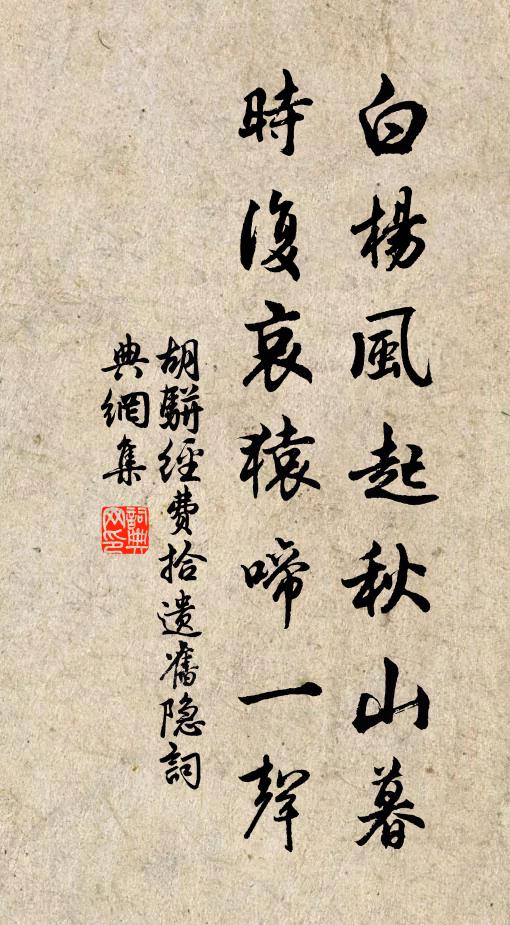 白楊風起秋山暮
時復哀猿啼一聲
胡駢經費拾遺舊隐詞
典網集
詞典網印